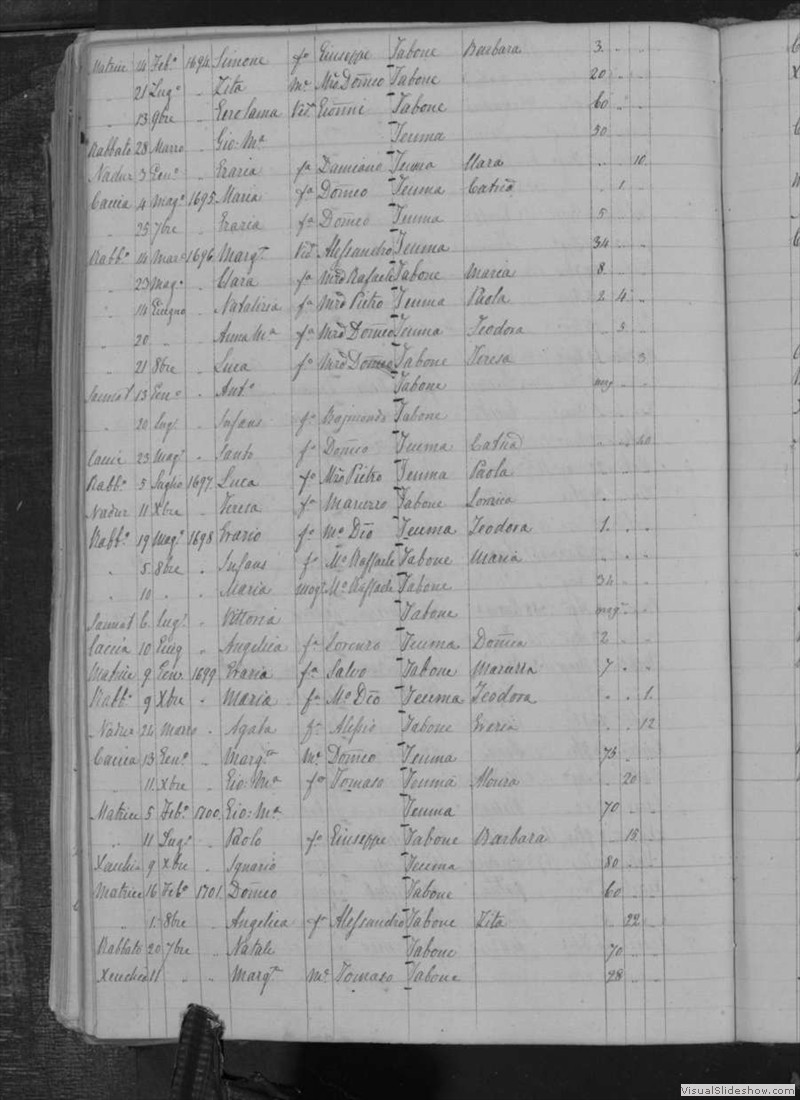 Matrice 14 Feb.o 1694 Simone fo Giuseppe Tabone Barbara 3 " "
" 21 Lug.o " Zita Me Mro Domco Tabone 20 " "
" 13 9bre " Gerolama Vid. Gionni Tabone 60 " "
Rabbato 28 Marzo " Gio: Ma Teuma 50 " "
Nadur 3 Gen.o " Grazia fa Damiano Teuma Clara " " 10
Caccia 4 Mag.o 1695 Maria fa Domco Teuma Catna " 1 "
" 25 7bre " Grazia fa Domco Teuma 5 " "
Rabb.o 14 Marzo 1696 Marg.ta Vid. Alessandro Teuma 34 " "
" 23 Mag.o " Clara fa Mro Rafaele Tabone Maria 8 " "
" 14 Giugno " Natalizia fa Mro Pietro Teuma Paola 2 4 "
" 20 " " Anna Ma fa Mro Domco Teuma Teodora " 3 "
" 21 8bre " Luca fo Mro Domco Tabone Teresa " " 3
Sannat 13 Gen.o " Ant.o Tabone " "
" 20 Lug.o " Infans fo Raimondo Tabone " "
Caccia 23 Mag.o " Santo fo Domco Teuma Catna " " 40
Rabb.o 5 Luglio 1697 Luca fo Mro Pietro Teuma Paola
Nadur 11 Xbre " Teresa fa Tabone
Rabb.o 19 Mag.o 1698 Grazio fo Mo Dco Teuma Teodora 1 " "
" 5 8bre " Infans fo Mo Raffaele Tabone Maria " " "
" 10 " " Maria mog.e Mo Raffaele Tabone 34 " "
Sannat 6 Lug.o " Vittoria Tabone " "
Caccia 10 Giug " Angelica fa Lorenzo Teuma Domca 2 " "
Matrice 9 Gen. 1699 Grazia fa Salvo Tabone 7 " "
Rabb.o 9 Xbre " Maria fa Mo Dco Teuma Teodora " " 1
Nadur 24 Marzo " Agata fa Alessio Tabone " " 12
Caccia 13 Gen.o " Marg.ta Me Domco Teuma 75 " "
" 11 Xbre " Gio: Ma fo Tomaso Teuma " 20 "
Matrice 5 Feb.o 1700 Gio: Ma Teuma 70 " "
" 11 Lug.o " Paolo fo Giuseppe Tabone Barbara " 18 "
9 Xbre " Ignazio Teuma 80 " "
Matrice 16 Feb.o 1701 Domco Tabone 60 " "
" 1 8bre " Angelica fa Alessandro Tabone Zita " 22 "
Rabbato 20 7bre " Natale Tabone 70 " "
11 " " Marg.ta Me Tomaso Tabone 28 " "
VisualSlideshow.com